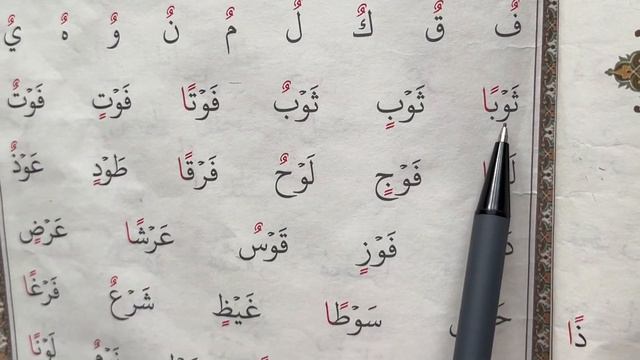 فٌ قٌ كٌ لٌ مٌ نٌ وٌ هٌ يٌ
ثَوْبًا ثَوْبٍ ثَوْبٌ فَوْتًا فَوْتٍ فَوْتٌ
فَوْجٍ لَوْحٌ فَرْقًا طَوْدٍ عَوْذٌ
فَوْزٍ قَوْسٌ عَرْشًا عَرْضٍ
سَوْطًا غَيْظٍ شَرْعٌ فَرْغًا
لَوْنًا
ذًا